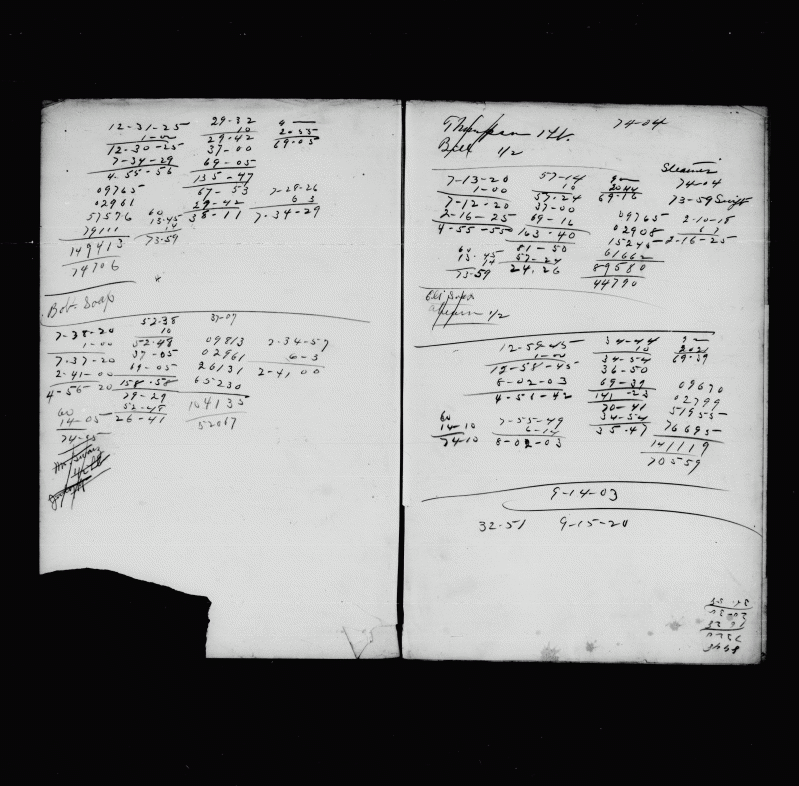 12-31-25 29-32
1-00 10
12-30-25 29-42 69-05
7-34-29 37-00
4-55-56 69-05
135-47
09765 67-53 7-28-26
02961 29-42 6 3
57576 60 38-11 7-34-29
79111 13-45
149413 14
74706 73-59
Bob Soap
52-38 37-07
7-38-20 10
1-00 52-48 09813 7-34-57
7-37-20 37-05 02961 6-3
2-41-00 69-05 26131 2-41 00
4-56-20 158-58 65230
79-29 104135
60 52-48 52067
14-05 26-41
74-05
Thompson 74-04
Bill 1/2
Steamer
7-13-20 57-14 74-04
1-00 10 69-16 73-59 Swift
7-12-20 57-24
2-16-25 37-00 09765 2-10-18
4-55-55 69-16 02908 6 7
163-40 15245 2-16-25
60 81-50 61662
13-45 57-24 89580
14 24.26 44790
73-59
1/2
12-59-45 34-44
1-00 10 69-39
12-58-45 34-54
8-02-03 36-50
4-56-42 69-39 09670
141-23 02799
60 70-41 51955
14-10 7-55-49 34-54 76695
74-10 6-14 35-47 141119
8-02-03 70559
9-14-03
32-51 9-15-20